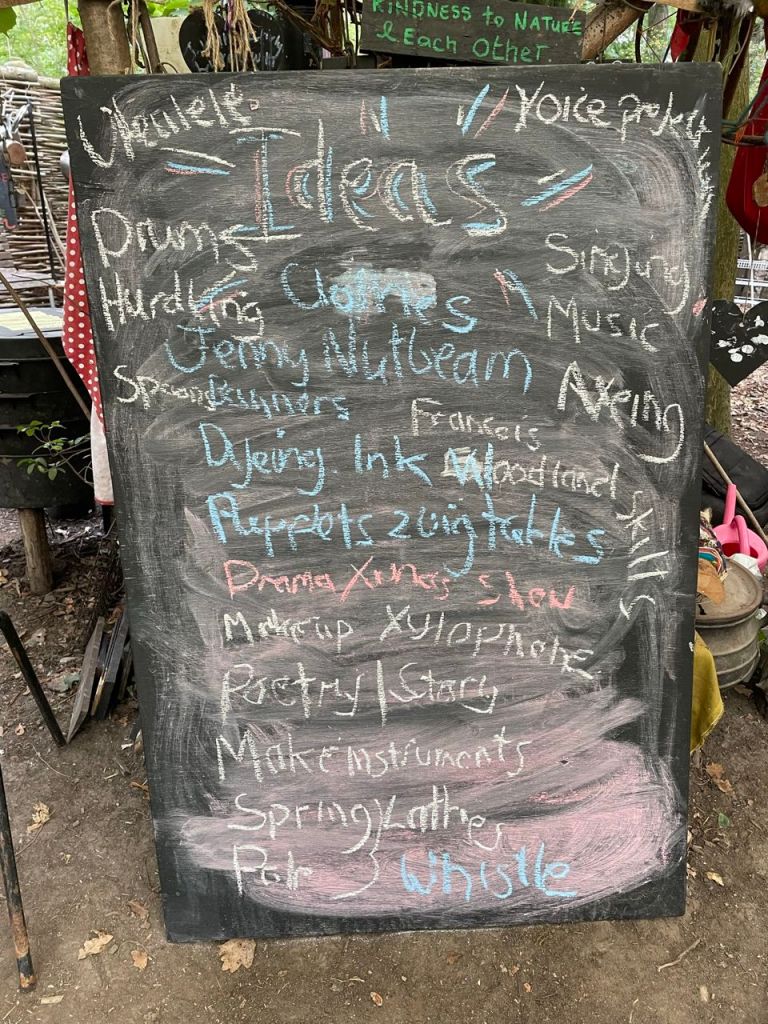 KINDNESS to NATURE
& Each Other
Ukulele.
Voice project
Ideas
Drums
Singing
Hurdling
Clothes
Music
Jenny Nutbeam
Spoon
Axeing
Francis
Dyeing. Ink
Woodland skills
Puppets
Drama Xmas show
Makeup Xylophone
Poetry/Story
Make instruments
Spring Lathes
Pole
Whistle